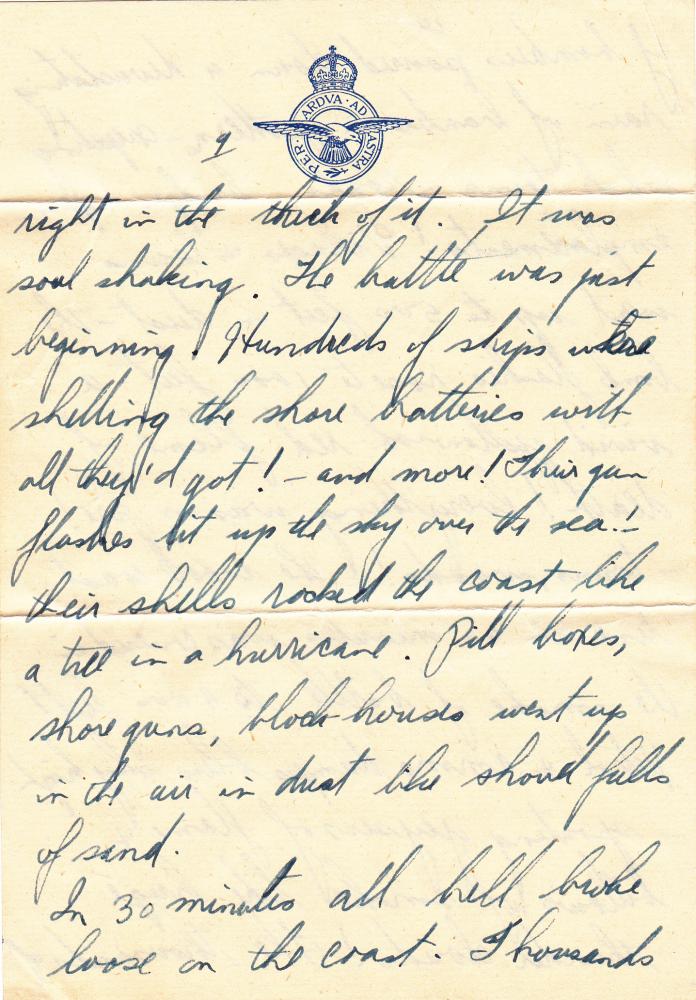 PER · ARDVA · AD ASTRA
9
right in the thick of it. It was
soul shaking. The battle was just
beginning! Hundreds of ships where
shelling the shore batteries with
all they'd got! - and more! Their gun
flashes lit up the sky over the sea! -
their shells rocked the coast like
a tree in a hurricane. Pill boxes,
shore guns, block-houses went up
in the air in dust like shovel fulls
of sand.
In 30 minutes all hell broke
loose on the coast. Thousands